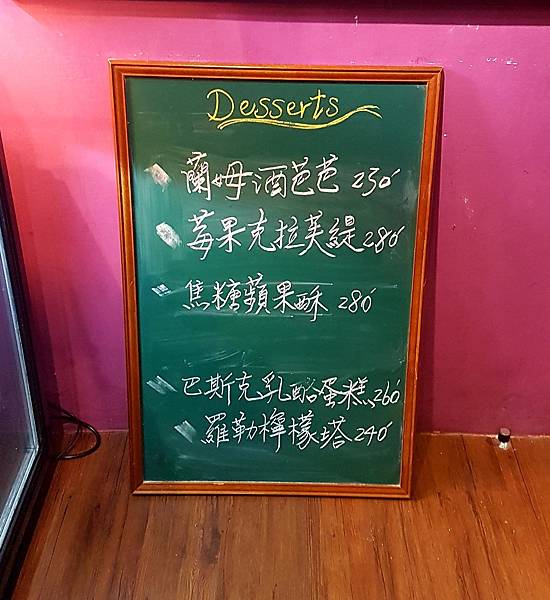 Desserts
蘭姆酒芭芭 230
莓果克拉芙緹 280
焦糖蘋果酥 280
巴斯克乳酪蛋糕 260
羅勒檸檬塔 240